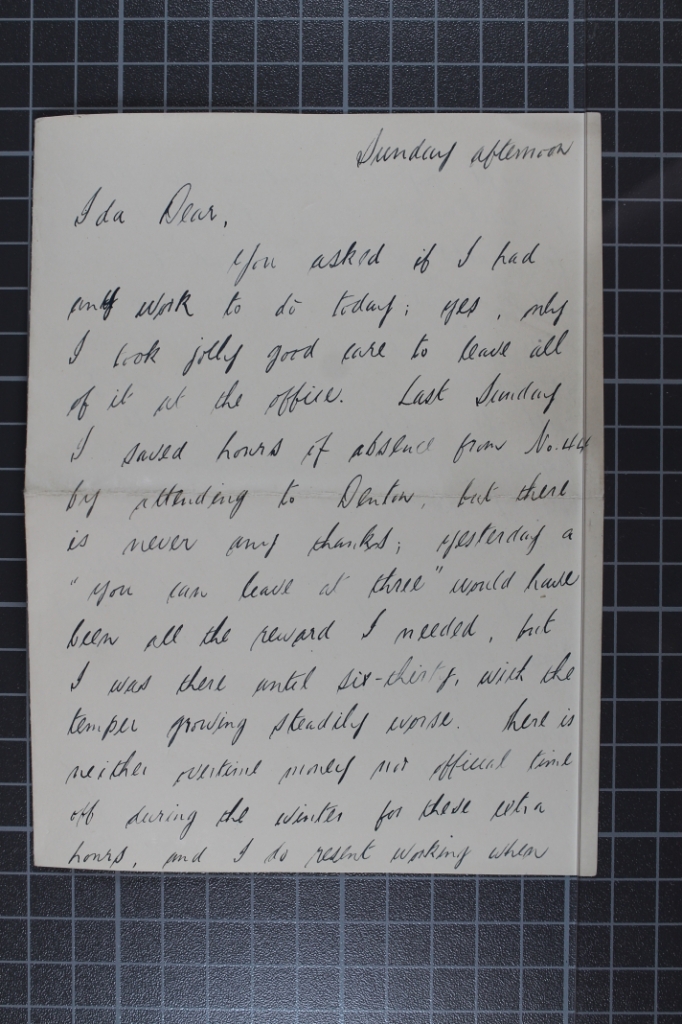 Sunday afternoon
Ida Dear,
You asked if I had
any work to do today; yes, only
I took jolly good care to leave all
of it at the office. Last Sunday
I saved hours of absence from No. 44
by attending to Denton, but there
is never any thanks; yesterday a
"you can leave at three" would have
been all the reward I needed, but
I was there until six-thirty, with the
temper growing steadily worse. There is
neither overtime money nor official time
off during the winter for these extra
hours, and I do resent working when